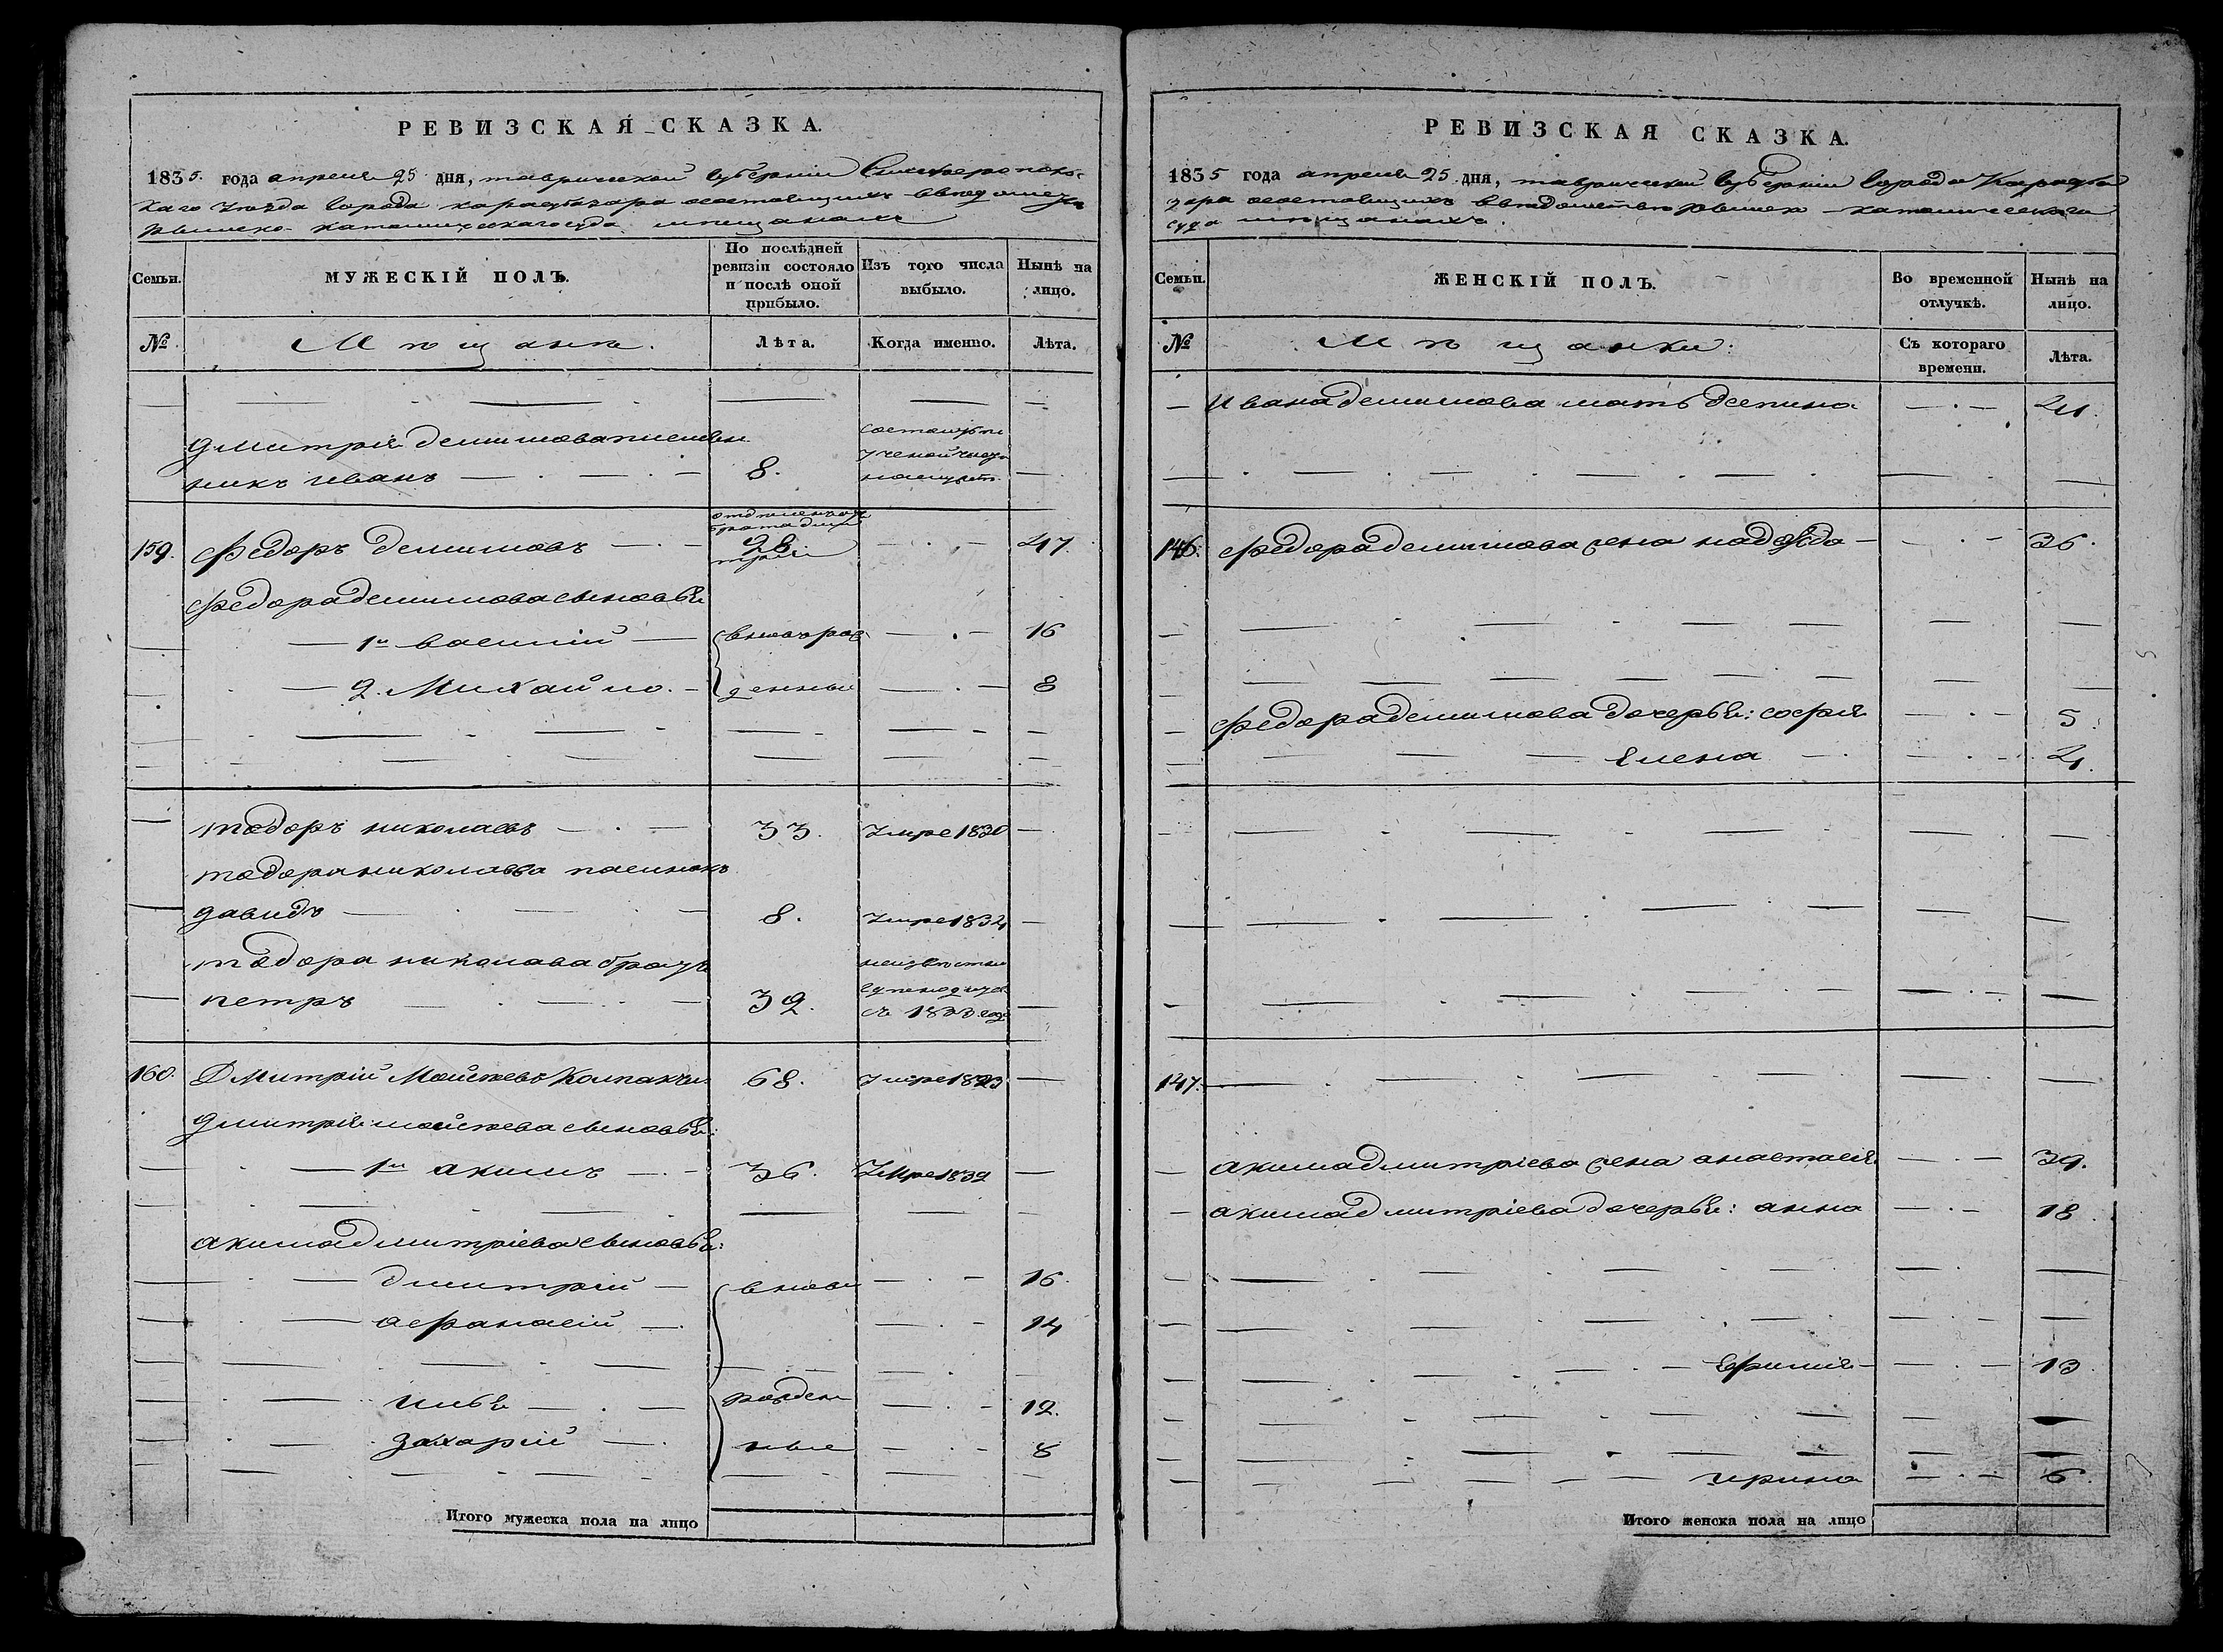 РЕВИЗСКАЯ СКАЗКА.
1835. года апреля 25 дня, таврической губерніи Симферополь-
каго уезда города карасубазара состоящихъ
римско-католическагосуда мещанахъ
Семьи.
МУЖЕСКІЙ ПОЛЪ.
По послѣдней ревизіи состояло и послѣ оной прибыло.
Изъ того числа выбыло.
Нынѣ на лицо.
№
Мѣщане.
Лѣта.
Когда именно.
Лѣта.
Дмитрія племян
никъ иванъ 8.
159. Федоръ 28 47.
Федора сыновья
1й василій вновьрож 16
2. Михайло. денные 8
тодоръ николаевъ 33. Умре 1830
тодора николаева пасинокъ
давидъ 8. умре 1834
тодора николаева братъ
петръ 32.
160. Дмитрій 68. умре 1823
дмитрія сыновья:
1й акимъ 36. Умре 1832
акима дмитріева сыновья:
дмитрій вновь 16.
афанасій 14
илья рожден 12.
захарій ные 8
Итого мужеска пола на лицо
РЕВИЗСКАЯ СКАЗКА.
1835 года апреля 25 дня, таврической губерніи города Карасуба
зара состоящихъ римско-католическаго
суда мещанахъ.
Семьи.
ЖЕНСКІЙ ПОЛЪ.
Во временной отлучкѣ.
Нынѣ на лицо.
№
Мѣщанки:
Съ котораго времени.
Лѣта.
Ивана мать
146. Федора жена надежда 36.
Федора дочерья: софия 5.
Елена
147.
акима дмитріева жена анастасія 39.
акима дмитріева дочерья: анна 18.
Ефимия 13
ирина 6.
Итого женска пола на лицо